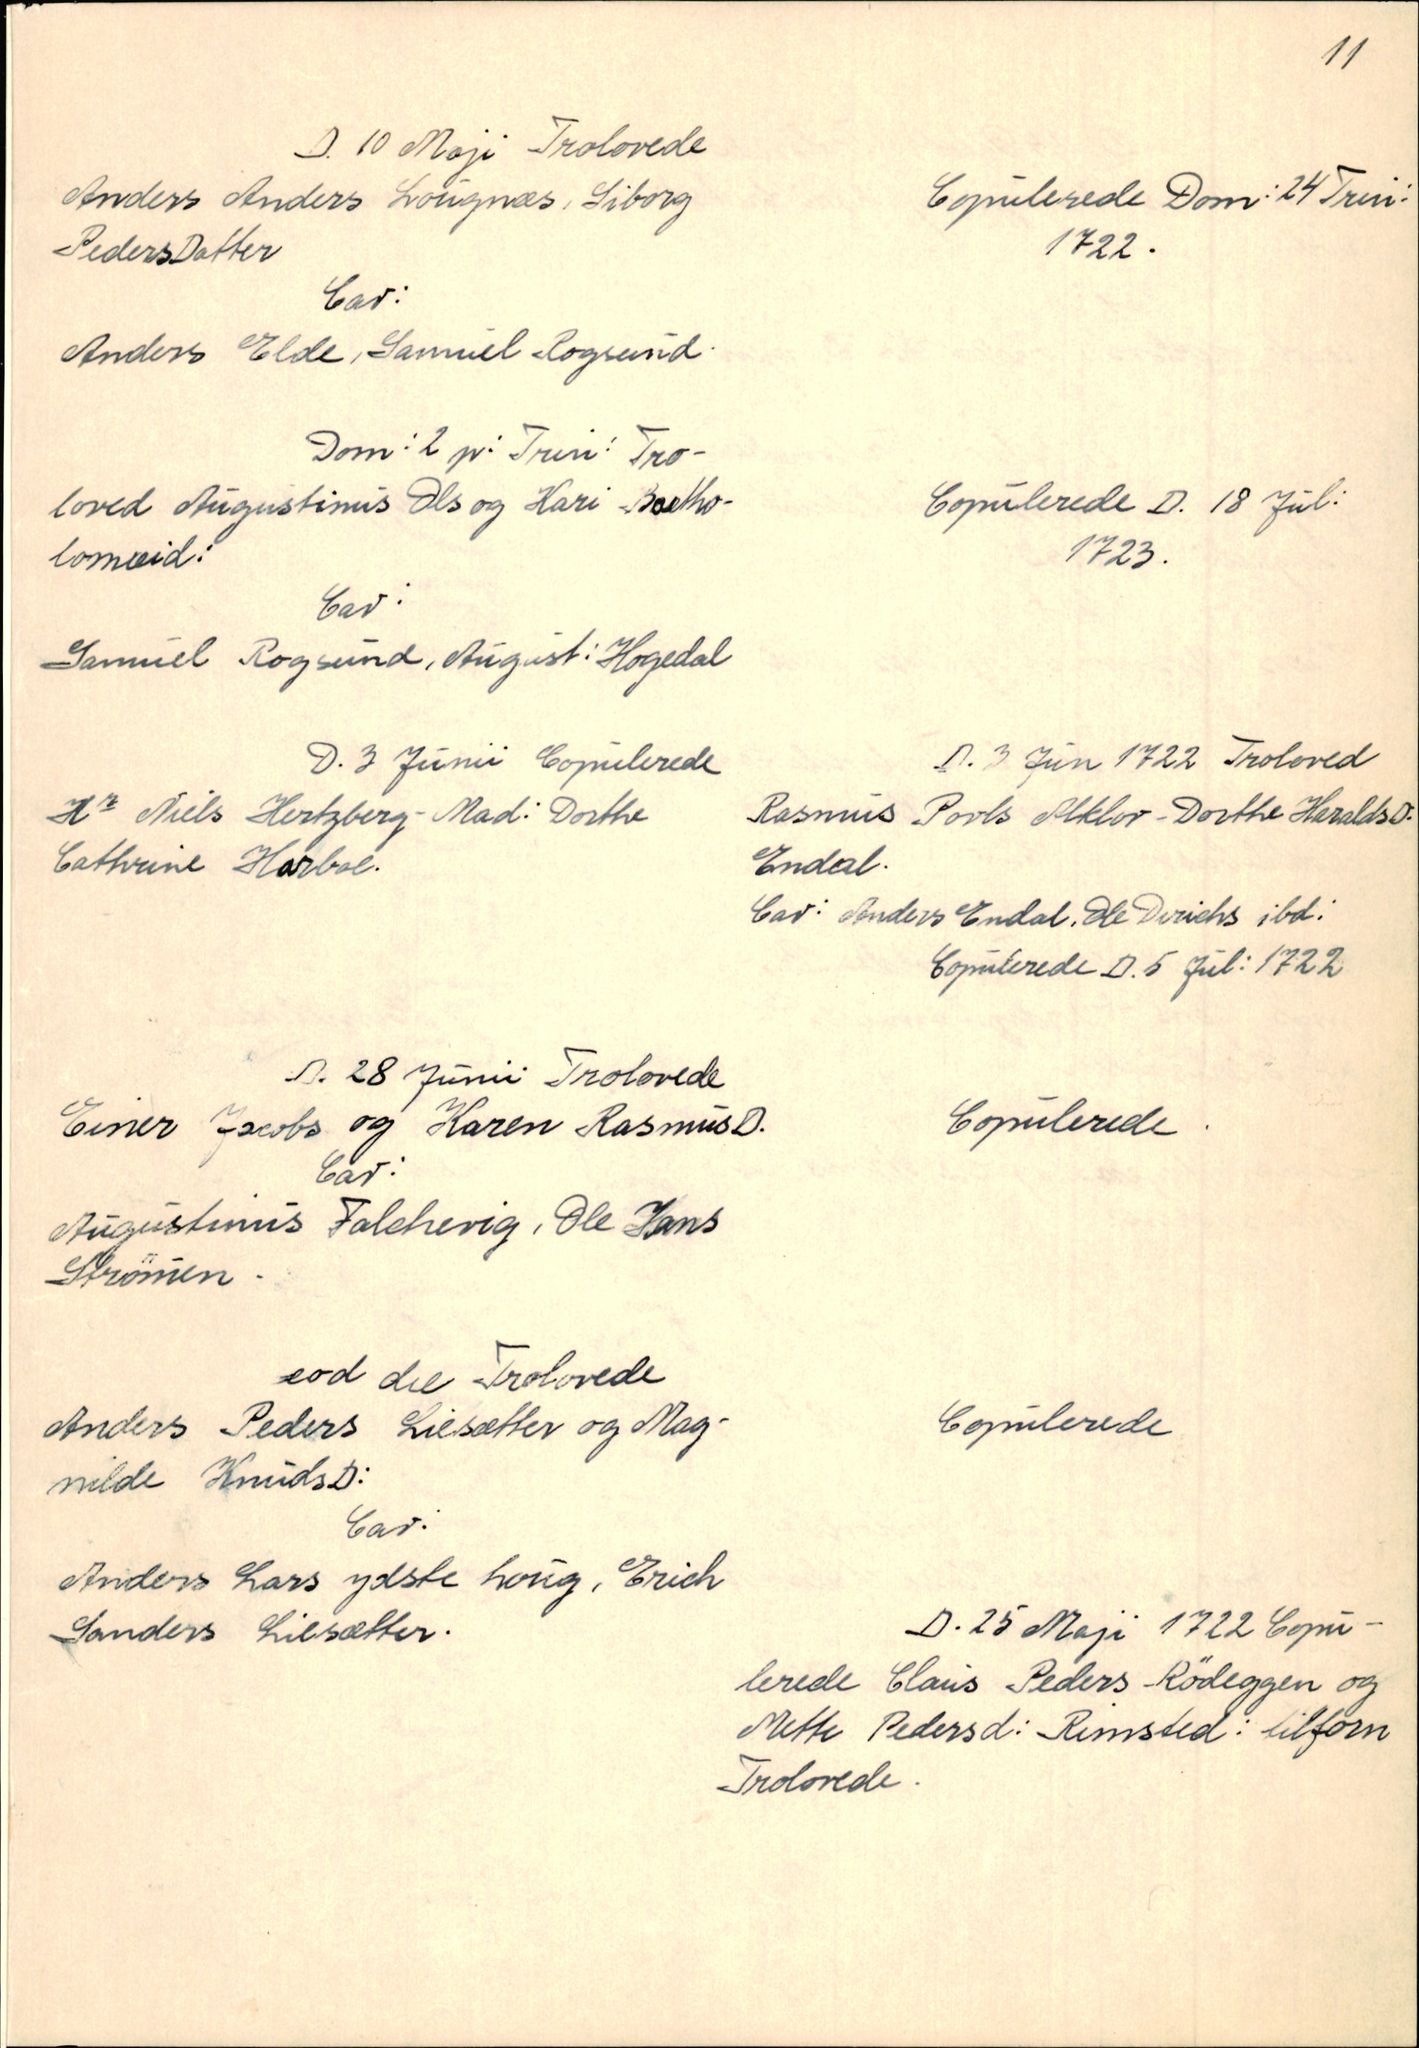 11
D. 10 Maji Trolovede
Anders Anders Lougnæs, Siborg
PedersDatter
Cav:
Anders Elde, Samuel Rogsund.
Copulerede Dom: 24 Trin:
1722.
Dom: 2 p: Trin: Tro-
loved Augustinus Ols og Kari Bartho-
lomæid:
Cav:
Samuel Rogsund, August: Hogedal
Copulerede D. 18 Jul:
1723.
D. 3 Junii Copulerede
Hr Niels Hertzberg - Mad: Dorthe
Cathrine Harboe.
D. 3 Jun 1722 Troloved
Rasmus Povls Alklov - Dorthe HaraldsD.
Endal.
Cav: Anders Endal, Ole Dirichs ibd:
Copulerede D. 5 Jul: 1722
D. 28 Junii Trolovede
Einer Jacobs og Karen RasmusD.
Cav:
Augustinus Falchevig, Ole Hans
Strömen.
Copulerede.
eod die Trolovede
Anders Peders Liesætter og Mag-
nilde KnudsD:
Cav:
Anders Lars ydste houg, Erich
Sanders Liesætter.
Copulerede
D. 25 Maji 1722 Copu-
lerede Claus Peders Rödeggen og
Mette Pedersd: Rimsted: tilforn
Trolovede.